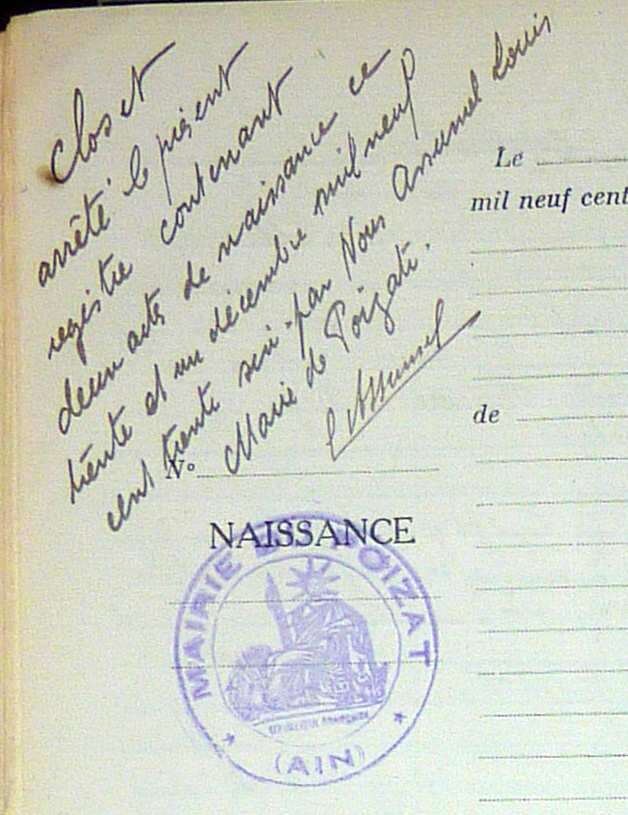 Clos et
arrêté le présent
registre contenant
deux actes de naissance ce
trente et un décembre mil neuf
cent trente six par Nous Assumel Louis
Maire de Poizat.
L Assumel
N°
NAISSANCE
MAIRIE DU POIZAT
REPUBLIQUE FRANÇAISE
(AIN)
Le
mil neuf cent
de